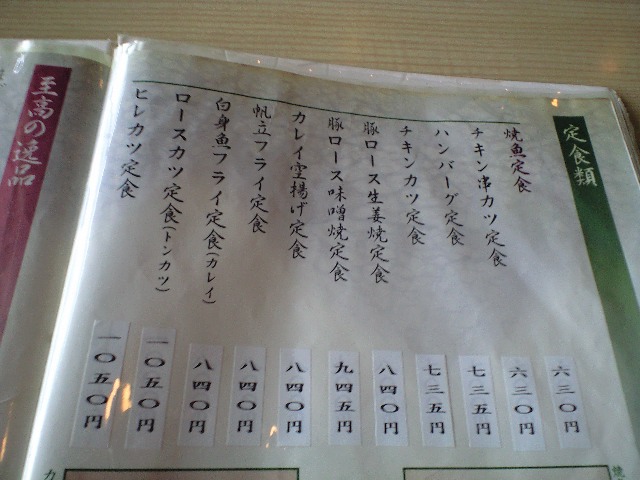 定食類
焼魚定食
チキン串カツ定食
ハンバーグ定食
チキンカツ定食
豚ロース生姜焼定食
豚ロース味噌焼定食
カレイ空揚げ定食
帆立フライ定食
白身魚フライ定食(カレイ)
ロースカツ定食(トンカツ)
ヒレカツ定食
六三〇円
六三〇円
七三五円
七三五円
八四〇円
九四五円
八四〇円
八四〇円
八四〇円
一〇五〇円
一〇五〇円
至高の逸品